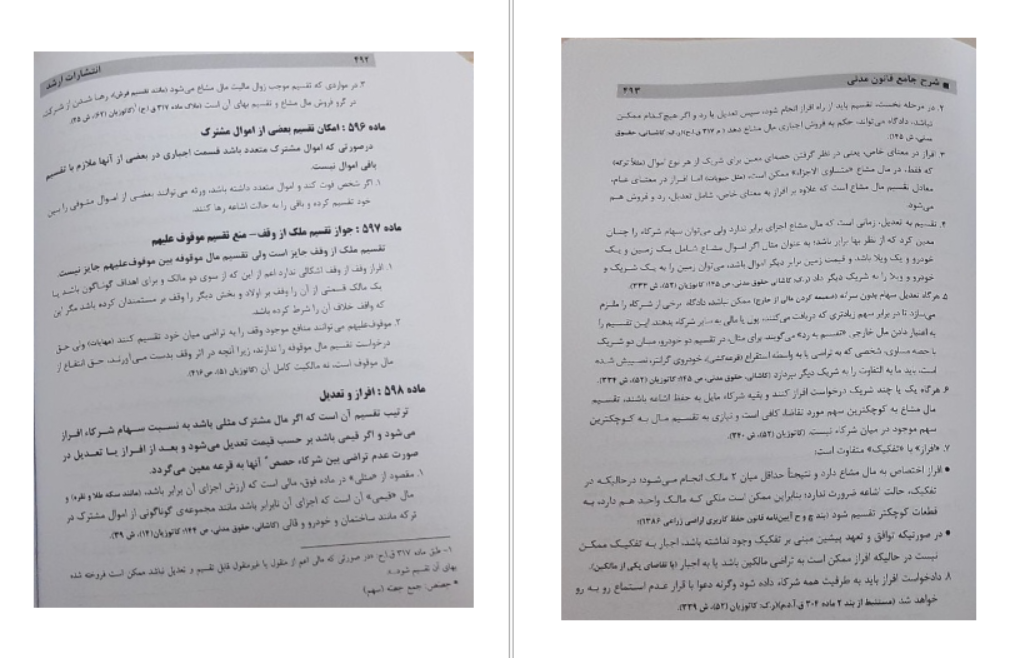 ۴۹۲
انتشارات ارشد
۳. در مواردی که تقسیم موجب زوال مالیت مال مشاع می‌شود (مانند تقسیم فرش) رها شدن از شرکت،
در گرو فروش مال مشاع و تقسیم بهای آن است (ملاک ماده ۳۱۷ ق.ا.ح)¹(کاتوزیان (۶۲)، ش ۴۵).
ماده ۵۹۶ : امکان تقسیم بعضی از اموال مشترک
درصورتی که اموال مشترک متعدد باشد قسمت اجباری در بعضی از آنها ملازم با تقسیم
باقی اموال نیست.
۱. اگر شخص فوت کند و اموال متعدد داشته باشد، ورثه می‌توانند بعضی از اموال متوفی را بین
خود تقسیم کرده و باقی را به حالت اشاعه رها کنند.
ماده ۵۹۷ : جواز تقسیم ملک از وقف– منع تقسیم موقوف علیهم
تقسیم ملک از وقف جایز است ولی تقسیم مال موقوفه بین موقوف‌علیهم جایز نیست.
۱. افراز وقف از وقف اشکالی ندارد اعم از این که از سوی دو مالک و برای اهداف گوناگون باشد یا
یک مالک قسمتی از آن را وقف بر اولاد و بخش دیگر را وقف بر مستمندان کرده باشد مگر این
که واقف خلاف آن را شرط کرده باشد.
۲. موقوف‌علیهم می‌توانند منافع موجود وقف را به تراضی میان خود تقسیم کنند (مهایات) ولی حق
درخواست تقسیم مال موقوفه را ندارند، زیرا آنچه در اثر وقف بدست می‌آورند، حق انتفاع از
مال موقوف است، نه مالکیت کامل آن (کاتوزیان (۵)، ص۴۱۶).
ماده ۵۹۸ : افراز و تعدیل
ترتیب تقسیم آن است که اگر مال مشترک مثلی باشد به نسبت سهام شرکاء افراز
می‌شود و اگر قیمی باشد بر حسب قیمت تعدیل می‌شود و بعد از افراز یا تعدیل در
صورت عدم تراضی بین شرکاء حصص* آنها به قرعه معین می‌گردد.
۱. مقصود از «مثلی» در ماده فوق، مالی است که ارزش اجزای آن برابر باشد، (مانند سکه طلا و نقره) و
مال «قیمی» آن است که اجزای آن نابرابر باشد مانند مجموعه‌ی گوناگونی از اموال مشترک در
ترکه مانند ساختمان و خودرو و قالی (کاشانی، حقوق مدنی، ص ۱۴۴؛ کاتوزیان(۱۴)، ش ۳۹).
۱– طبق ماده ۳۱۷ ق.ا.ح: «در صورتی که مالی اعم از منقول یا غیرمنقول قابل تقسیم و تعدیل نباشد ممکن است فروخته شده
بهای آن تقسیم شود...».
* حصص: جمع حصّه (سهم)
■ شرح جامع قانون مدنی
۴۹۳
۲. در مرحله نخست، تقسیم باید از راه افراز انجام شود، سپس تعدیل یا رد و اگر هیچ‌کدام ممکن
نباشد، دادگاه می‌تواند، حکم به فروش اجباری مال مشاع دهد (م ۳۱۷ ق.ا.ح)(ر.ک: کاشانی، حقوق
مدنی، ص ۱۴۵).
۳. افراز در معنای خاص، یعنی در نظر گرفتن حصه‌ای معین برای شریک از هر نوع اموال (مثلاً ترکه)
که فقط، در مال مشاع «متساوی الاجزاء» ممکن است، (مثل حبوبات) اما افراز در معنای عام،
معادل تقسیم مال مشاع است که علاوه بر افراز به معنای خاص، شامل تعدیل، رد و فروش هم
می‌شود.
۴. تقسیم به تعدیل، زمانی است که مال مشاع اجزای برابر ندارد ولی می‌توان سهام شرکاء را چنان
معین کرد که از نظر بها برابر باشد؛ به عنوان مثال اگر اموال مشاع شامل یک زمین و یک
خودرو و یک ویلا باشد و قیمت زمین برابر دیگر اموال باشد، می‌توان زمین را به یک شریک و
خودرو و ویلا را به شریک دیگر داد (ر.ک: کاشانی حقوق مدنی، ص ۱۴۵؛ کاتوزیان (۵۲)، ش ۳۳۳).
۵. هرگاه تعدیل سهام بدون سرانه (ضمیمه کردن مالی از خارج) ممکن نباشد، دادگاه برخی از شرکاء را ملزم
می‌سازد تا در برابر سهم زیادتری که دریافت می‌کنند، پول یا مالی به سایر شرکاء بدهند. این تقسیم را
به اعتبار دادن مال خارجی «تقسیم به رد» می‌گویند. برای مثال، در تقسیم دو خودرو، میان دو شریک
با حصه مساوی، شخصی که به تراضی یا به واسطه استقراع (قرعه‌کشی)، خودروی گرانتر، نصیبش شده
است، باید ما به التفاوت را به شریک دیگر بپردازد (کاشانی، حقوق مدنی، ص ۱۴۵؛ کاتوزیان (۵۲)، ش ۳۳۴).
۶. هرگاه یک یا چند شریک درخواست افراز کنند و بقیه شرکاء مایل به حفظ اشاعه باشند، تقسیم
مال مشاع به کوچکترین سهم مورد تقاضا، کافی است و نیازی به تقسیم مال به کوچکترین
سهم موجود در میان شرکاء نیست. (کاتوزیان (۵۲)، ش ۳۴۰).
۷. «افراز» با «تفکیک» متفاوت است:
• افراز اختصاص به مال مشاع دارد و نتیجتاً حداقل میان ۲ مالک انجام می‌شود؛ درحالیکه در
تفکیک، حالت اشاعه ضرورت ندارد؛ بنابراین ممکن است ملکی که مالک واحد هم دارد، به
قطعات کوچکتر تقسیم شود (بند چ و ح آیین‌نامه قانون حفظ کاربری اراضی زراعی ۱۳۸۶)؛
• در صورتیکه توافق و تعهد پیشین مبنی بر تفکیک وجود نداشته باشد، اجبار به تفکیک ممکن
نیست در حالیکه افراز ممکن است به تراضی مالکین باشد یا به اجبار (با تقاضای یکی از مالکین).
۸. دادخواست افراز باید به طرفیت همه شرکاء داده شود وگرنه دعوا با قرار عدم استماع رو به رو
خواهد شد (مستنبط از بند ۲ ماده ۳۰۴ ق.آ.د.م)(ر.ک: کاتوزیان (۵۲)، ش ۳۳۹).